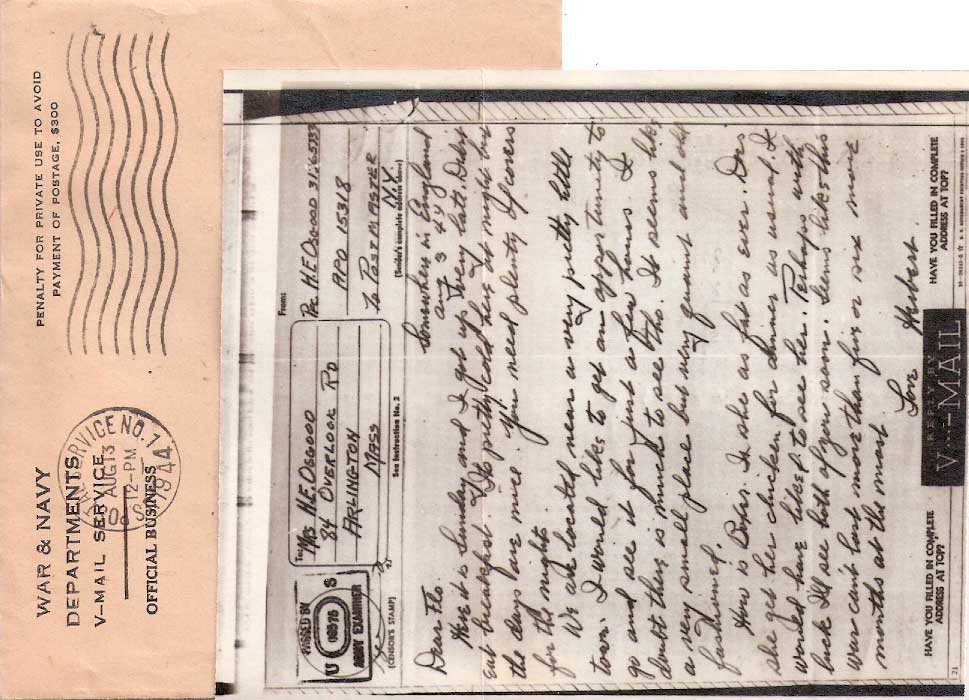 WAR & NAVY
DEPARTMENTS
V-MAIL SERVICE
OFFICIAL BUSINESS
SERVICE NO. 1
AUG 13
12-PM
1944
PENALTY FOR PRIVATE USE TO AVOID
PAYMENT OF POSTAGE, $300
PASSED BY
U S
ARMY EXAMINER
(CENSOR'S STAMP)
To:
Mrs H.E. OSGOOD
84 OVERLOOK RD
ARLINGTON
MASS
See Instruction No. 2
From:
Pvc H.E. OSGOOD
APO 1538
℅ POSTMASTER
N.Y.
(Sender's complete address above)
Somewhere in England
Aug 3 44
Dear Flo
Here it is Sunday and I got up very late. Didn't
eat breakfast. It's pretty cold here at night but
the days are nice. You need plenty of covers
for the nights.
We are located near a very pretty little
town. I would like to get an opportunity to
go and see it for just a few hours. I
doubt there is much to see tho. It seems like
a very small please but very quaint and old
fashioned.
How is Babs. Is she as fat as ever. Does
she get her chicken for dinner as usual. I
would have liked to see her. Perhaps with
luck I'll see both of you soon. Seems like this
war cant last more than five or six more
months at the most
Love Herbert
HAVE YOU FILLED IN COMPLETE
ADDRESS AT TOP?
V-MAIL
HAVE YOU FILLED IN COMPLETE
ADDRESS AT TOP?